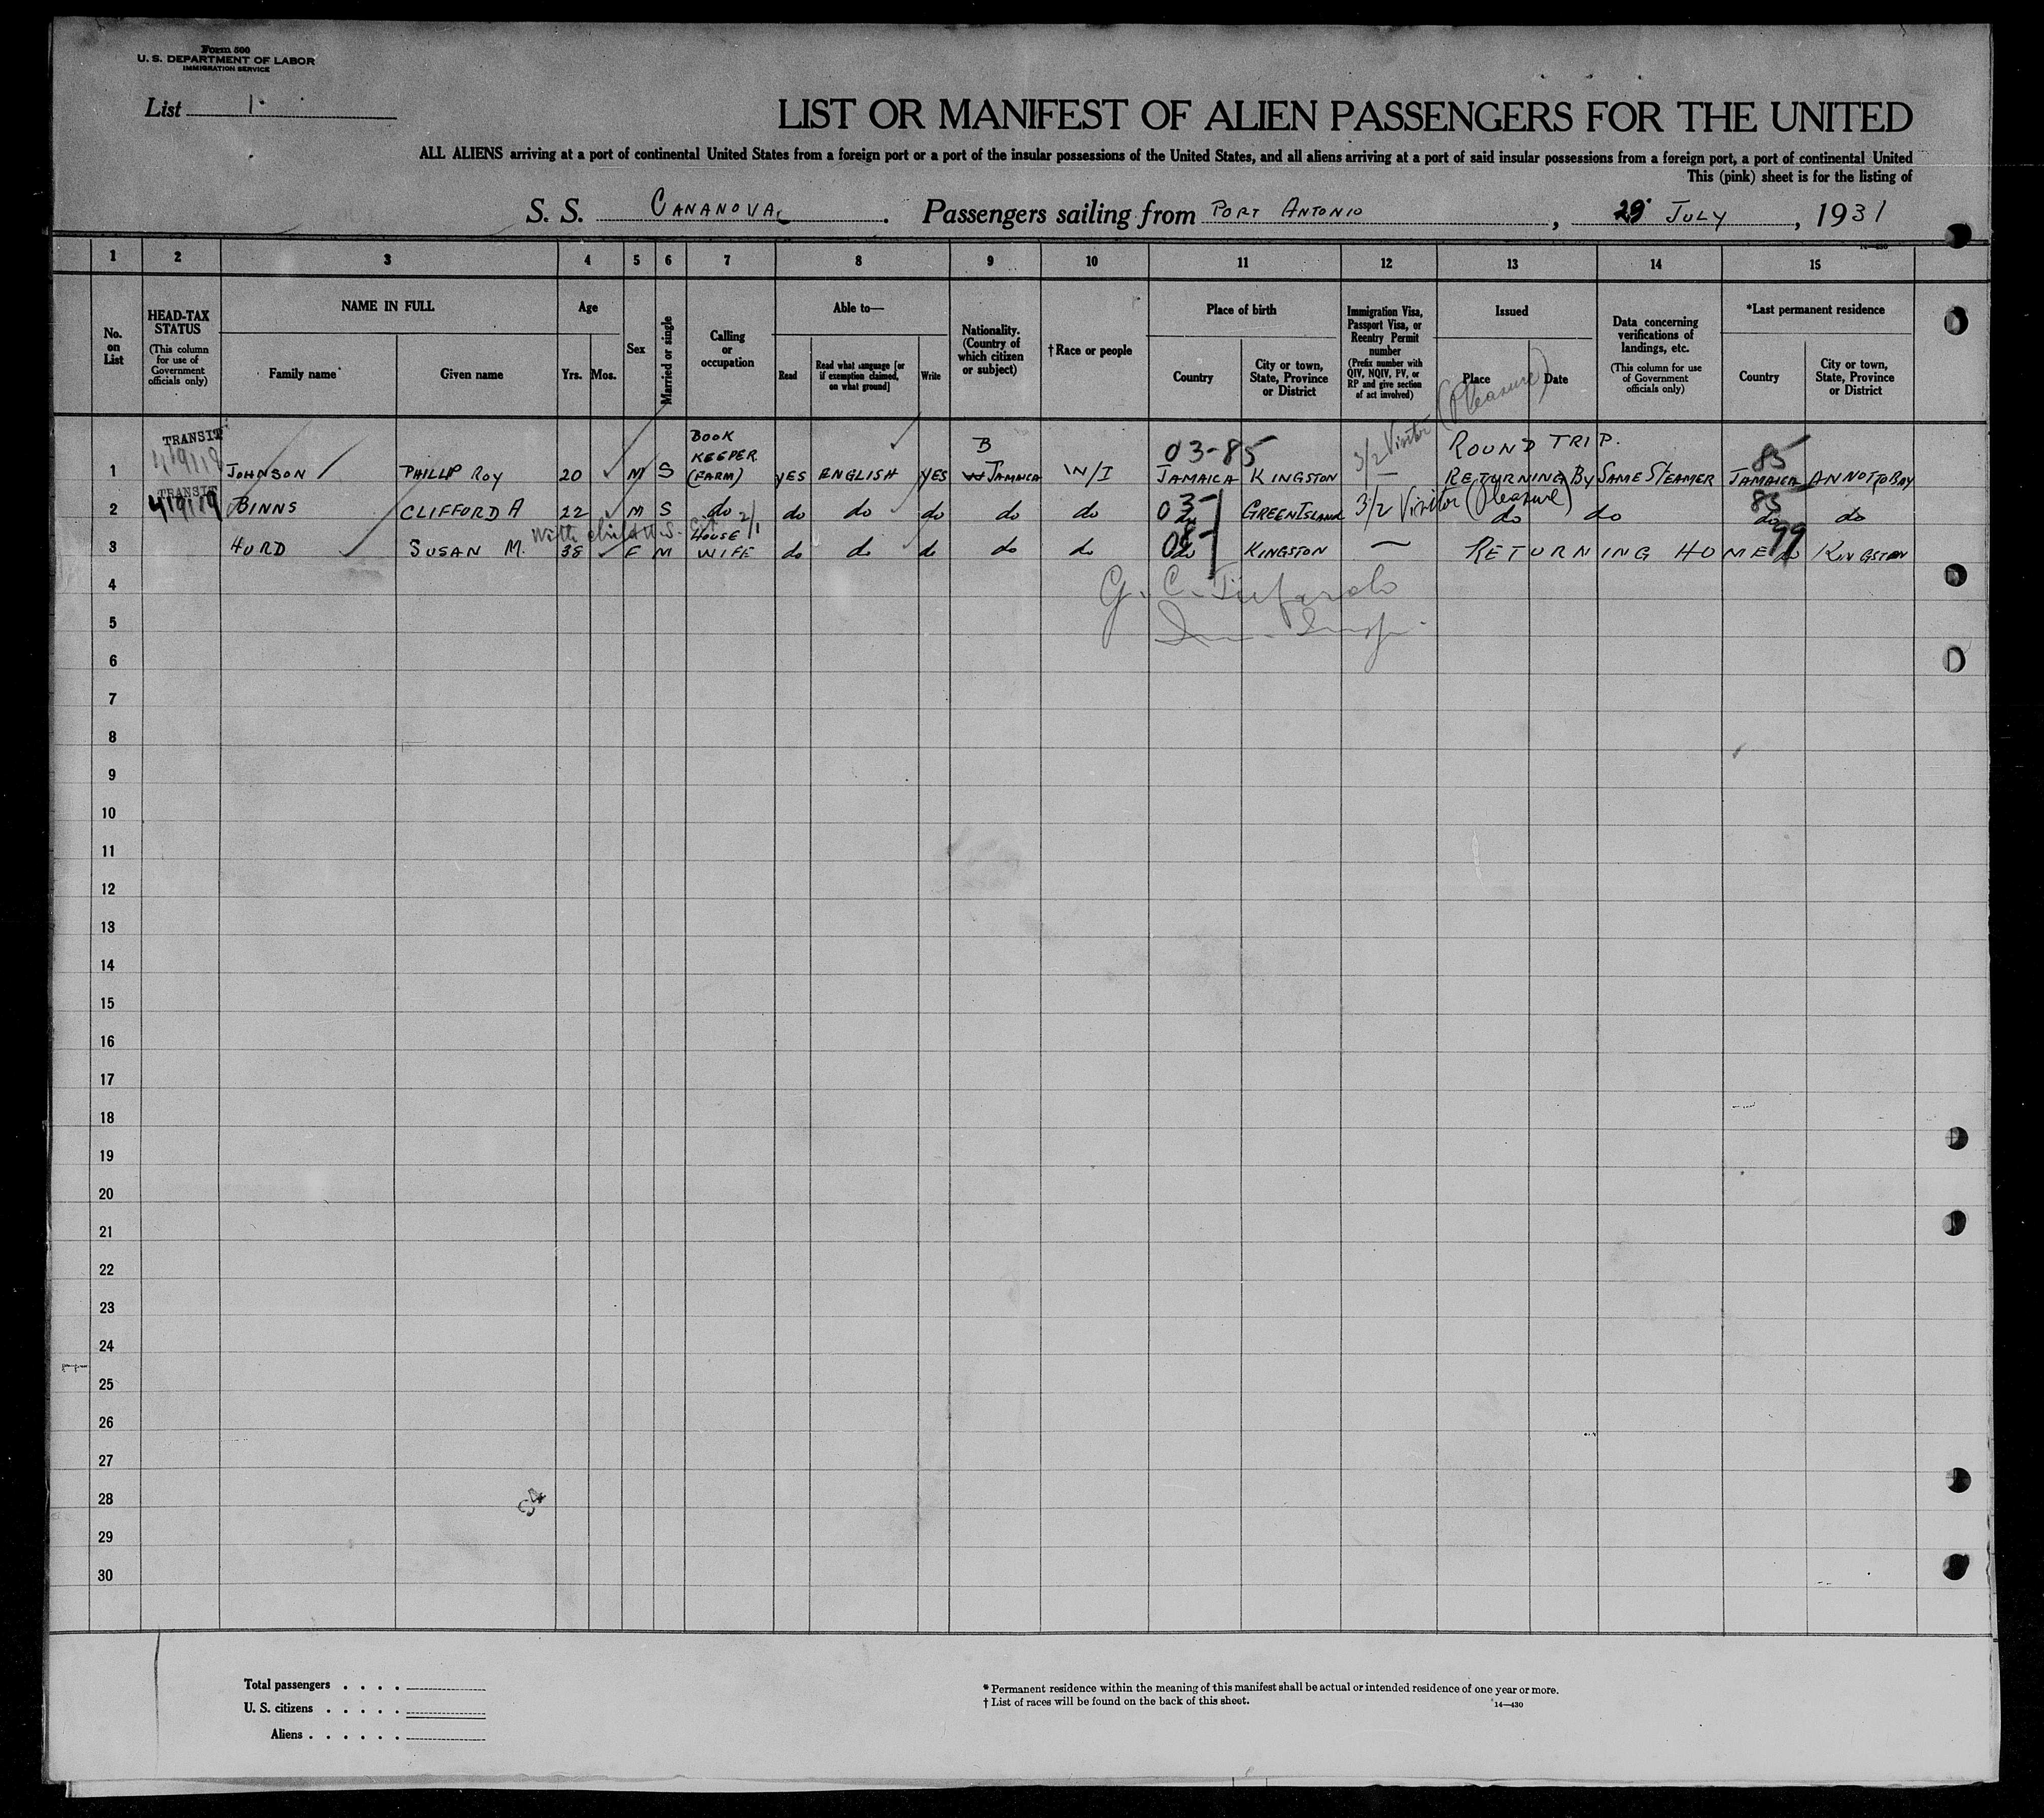 Form 500
U. S. DEPARTMENT OF LABOR
IMMIGRATION SERVICE
List 1
LIST OR MANIFEST OF ALIEN PASSENGERS FOR THE UNITED
ALL ALIENS arriving at a port of continental United States from a foreign port or a port of the insular possessions of the United States, and all aliens arriving at a port of said insular possessions from a foreign port, a port of continental United
This (pink) sheet is for the listing of
S. S. CANANOVA. Passengers sailing from PORT ANTONIO, 29 JULY, 1931
14—430
1 2 3 4 5 6 7 8 9 10 11 12 13 14 15
No. on List
HEAD-TAX STATUS
(This column for use of Government officials only)
NAME IN FULL
Family name
Given name
Age
Yrs. Mos.
Sex
Married or single
Calling or occupation
Able to—
Read
Read what language [or if exemption claimed, on what ground]
Write
Nationality. (Country of which citizen or subject)
†Race or people
Place of birth
Country
City or town, State, Province or District
Immigration Visa, Passport Visa, or Reentry Permit number
(Prefix number with QIV, NQIV, PV, or RP and give section of act involved)
Issued
Place
Date
Data concerning verifications of landings, etc.
(This column for use of Government officials only)
*Last permanent residence
Country
City or town, State, Province or District
TRANSIT BOOK KEEPER B 03-85 3/2 Visitor (Pleasure) ROUND TRIP. 85
1 JOHNSON PHILLIP ROY 20 M S (FARM) YES ENGLISH YES JAMAICA W/I JAMAICA KINGSTON — RETURNING BY SAME STEAMER JAMAICA ANNOTTO BAY
TRANSIT 03- 3/2 Visitor (Pleasure) 85
2 BINNS CLIFFORD A 22 M S do do do do do do do GREEN ISLAND do do do do
With child U.S. Cit 2/1 99
3 HURD SUSAN M. 38 F M HOUSE WIFE do do do do do do KINGSTON — RETURNING HOME do KINGSTON
4 G. C.
5
6
7
8
9
10
11
12
13
14
15
16
17
18
19
20
21
22
23
24
25
26
27
28
29
30
Total passengers . . . .
U. S. citizens . . . . .
Aliens . . . . . .
* Permanent residence within the meaning of this manifest shall be actual or intended residence of one year or more.
† List of races will be found on the back of this sheet.
14—430